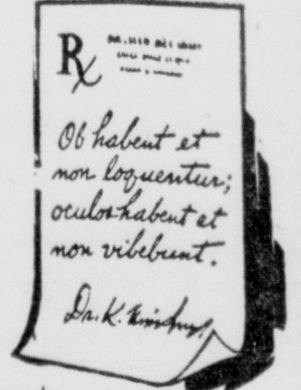 Rx
Ob habent et
non loquentur;
oculos habent et
non vibebunt.
Dr. K.